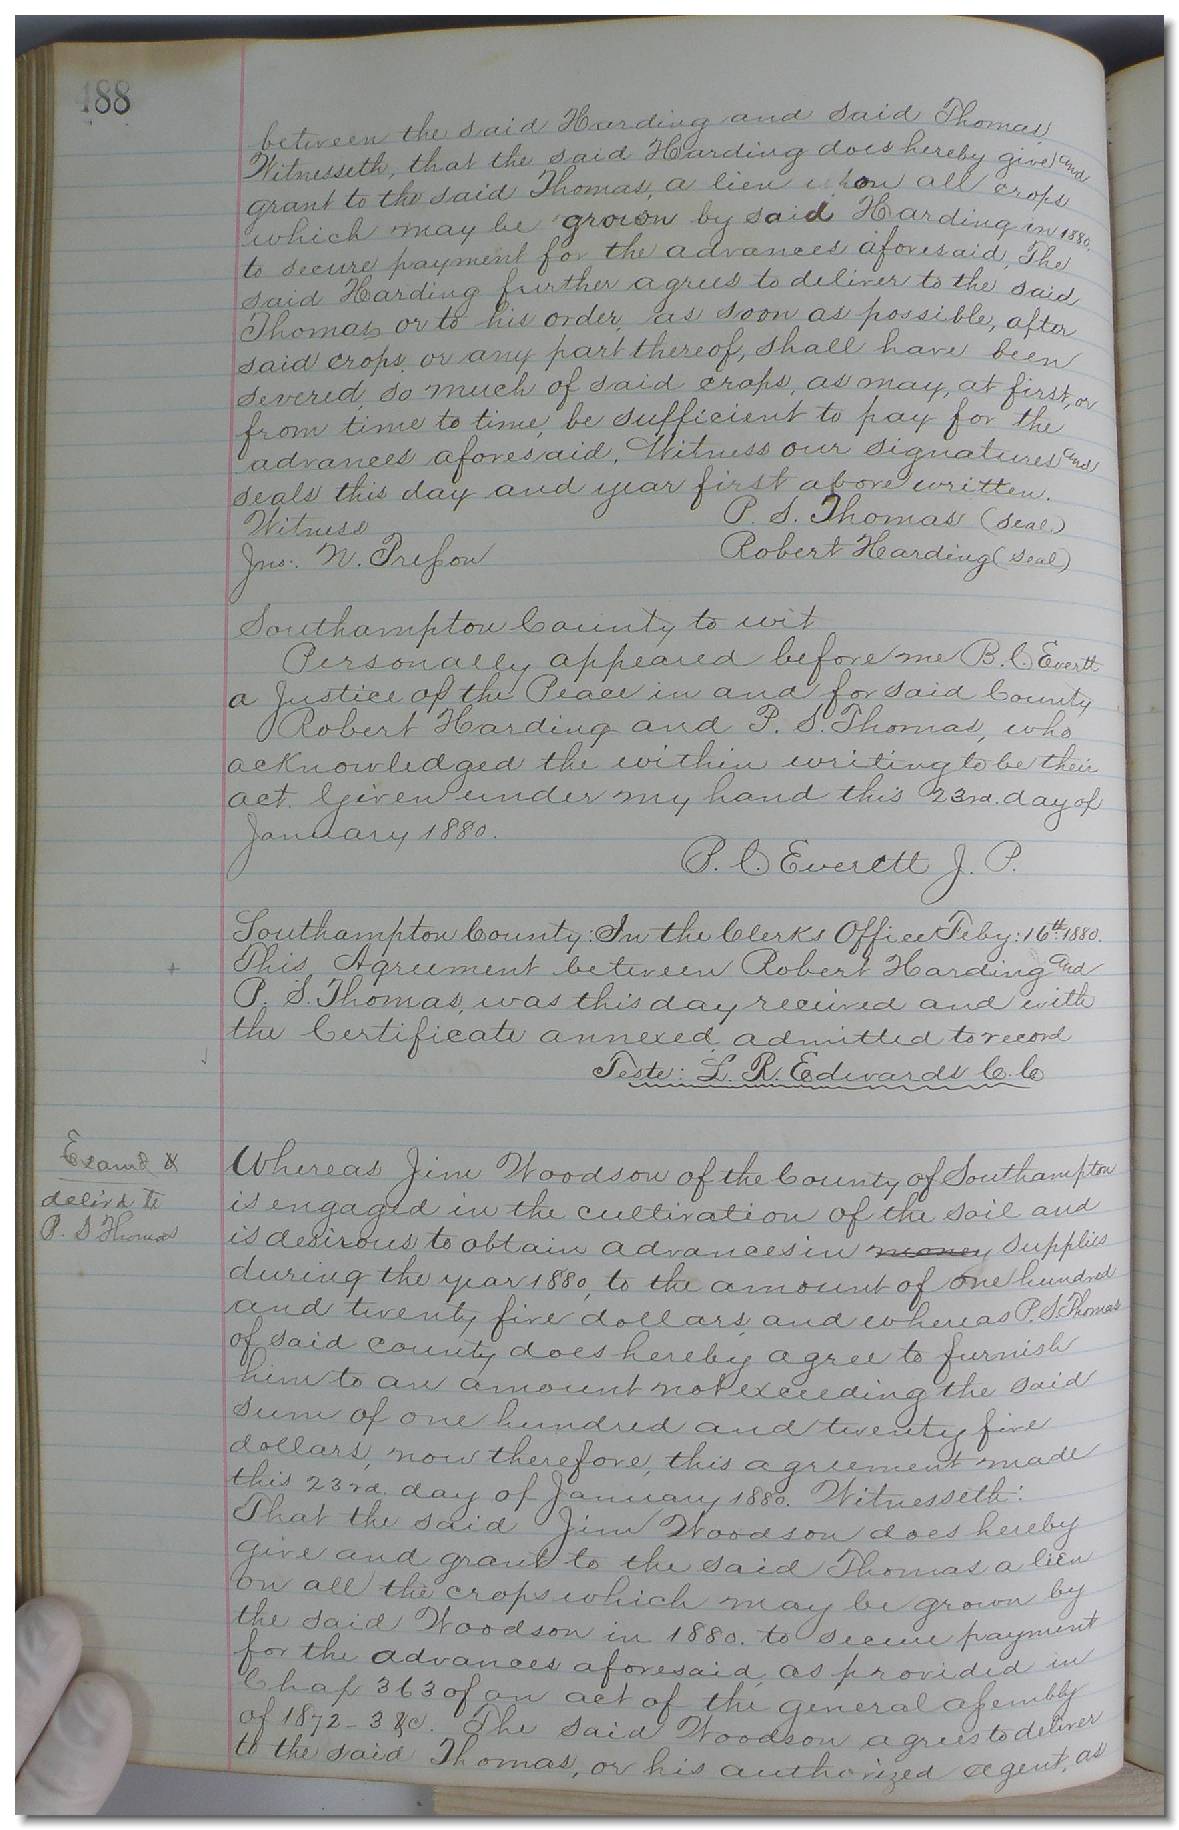 488
between the said Harding and said Thomas,
Witnesseth, that the said Harding does hereby give and
grant to the said Thomas, a lien upon all crops
which may be grown by said Harding in 1880.
to secure payment for the advances aforesaid, The
said Harding further agrees to deliver to the said
Thomas or to his order, as soon as possible, after
said crops, or any part thereof, shall have been
severed, so much of said crops, as may, at first, or
from time to time, be sufficient to pay for the
advances aforesaid. Witness our signatures and
seals this day and year first above written.
Witness P. S. Thomas (seal)
Jno. N. Preſson Robert Harding (seal)
Southampton County to wit
Personally appeared before me B. C. Everett
a Justice of the Peace in and for said County
Robert Harding and P. S. Thomas, who
acknowledged the within writing to be their
act. Given under my hand this 23rd. day of
January 1880.
P. C. Everett J. P.
Southampton County: In the Clerks Office Feby: 16th 1880.
This Agreement between Robert Harding and
P. S. Thomas, was this day received and with
the Certificate annexed admitted to record
Teste: L. R. Edwards C. C
Examd &
delivd to
P. S Thomas
Whereas Jim Woodson of the County of Southampton
is engaged in the cultivation of the soil and
is desirous to obtain advances in money supplies
during the year 1880, to the amount of one hundred
and twenty five dollars, and whereas P. S. Thomas
of said county does hereby agree to furnish
him to an amount not exceeding the said
sum of one hundred and twenty five
dollars, now therefore, this agreement made
this 23rd. day of January 1880. Witnesseth:
That the said Jim Woodson does hereby
give and grant to the said Thomas a lien
on all the crops which may be grown by
the said Woodson in 1880. to secure payment
for the advances aforesaid, as provided in
Chap 363 of an act of the general aſsembly
of 1872-3 &c. The said Woodson agrees to deliver
to the said Thomas, or his authorized agent, as